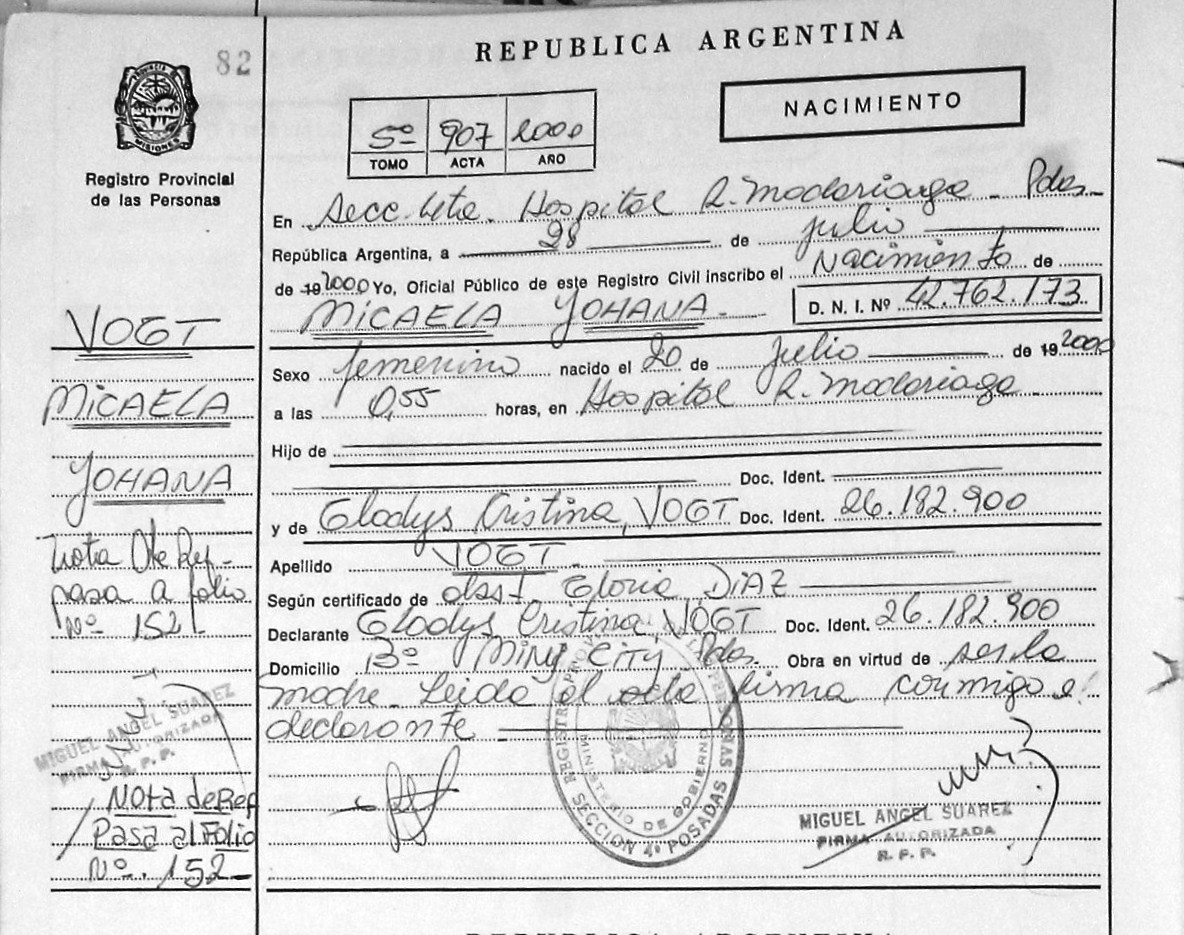 REPUBLICA ARGENTINA
82
NACIMIENTO
PROVINCIA DE MISIONES
5º 907 2000
TOMO ACTA AÑO
Registro Provincial
de las Personas
En Secc. 4ta. Hospital R. Madariaga - Pdas
República Argentina, a 28 de julio
de 192000 Yo, Oficial Público de este Registro Civil inscribo el Nacimiento de
MICAELA YOHANA.
D. N. I. Nº 42.762.173
Sexo femenino nacido el 20 de Julio de 192000
a las 0,55 horas, en Hospital R. Madariaga
Hijo de
Doc. Ident.
y de Gladys Cristina, VOGT Doc. Ident. 26.182.900
Apellido VOGT
Según certificado de obst. Gloria DIAZ
Declarante Gladys Cristina, VOGT Doc. Ident. 26.182.900
Domicilio Bº Miny CITY Pdas. Obra en virtud de ser la
madre. Leida el acta firma conmigo el
declarante
VOGT
MICAELA
YOHANA
Nota De Ref-
pasa a folio
Nº 152
MIGUEL ANGEL SUAREZ
FIRMA AUTORIZADA
R. P. P.
Nota de Ref
Pasa al Folio
Nº. 152
REGISTRO PROVINCIAL DE LAS PERSONAS
MINISTERIO DE GOBIERNO
SECCION 4ª POSADAS
MIGUEL ANGEL SUAREZ
FIRMA AUTORIZADA
R. P. P.
REPUBLICA ARGENTINA